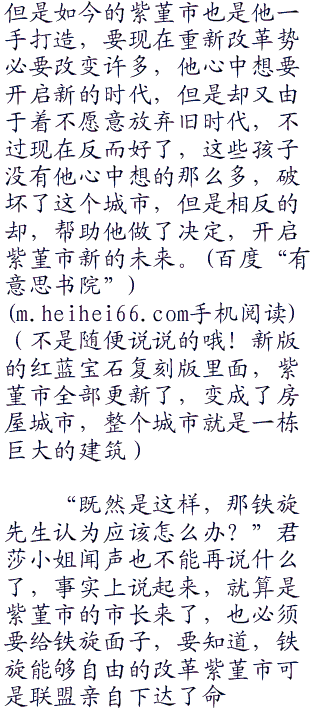 但是如今的紫堇市也是他一
手打造，要现在重新改革势
必要改变许多，他心中想要
开启新的时代，但是却又由
于着不愿意放弃旧时代，不
过现在反而好了，这些孩子
没有他心中想的那么多，破
坏了这个城市，但是相反的
却，帮助他做了决定，开启
紫堇市新的未来。(百度“有
意思书院”)
(m.heihei66.com手机阅读)
（不是随便说说的哦！新版
的红蓝宝石复刻版里面，紫
堇市全部更新了，变成了房
屋城市，整个城市就是一栋
巨大的建筑）
“既然是这样，那铁旋
先生认为应该怎么办？”君
莎小姐闻声也不能再说什么
了，事实上说起来，就算是
紫堇市的市长来了，也必须
要给铁旋面子，要知道，铁
旋能够自由的改革紫堇市可
是联盟亲自下达了命